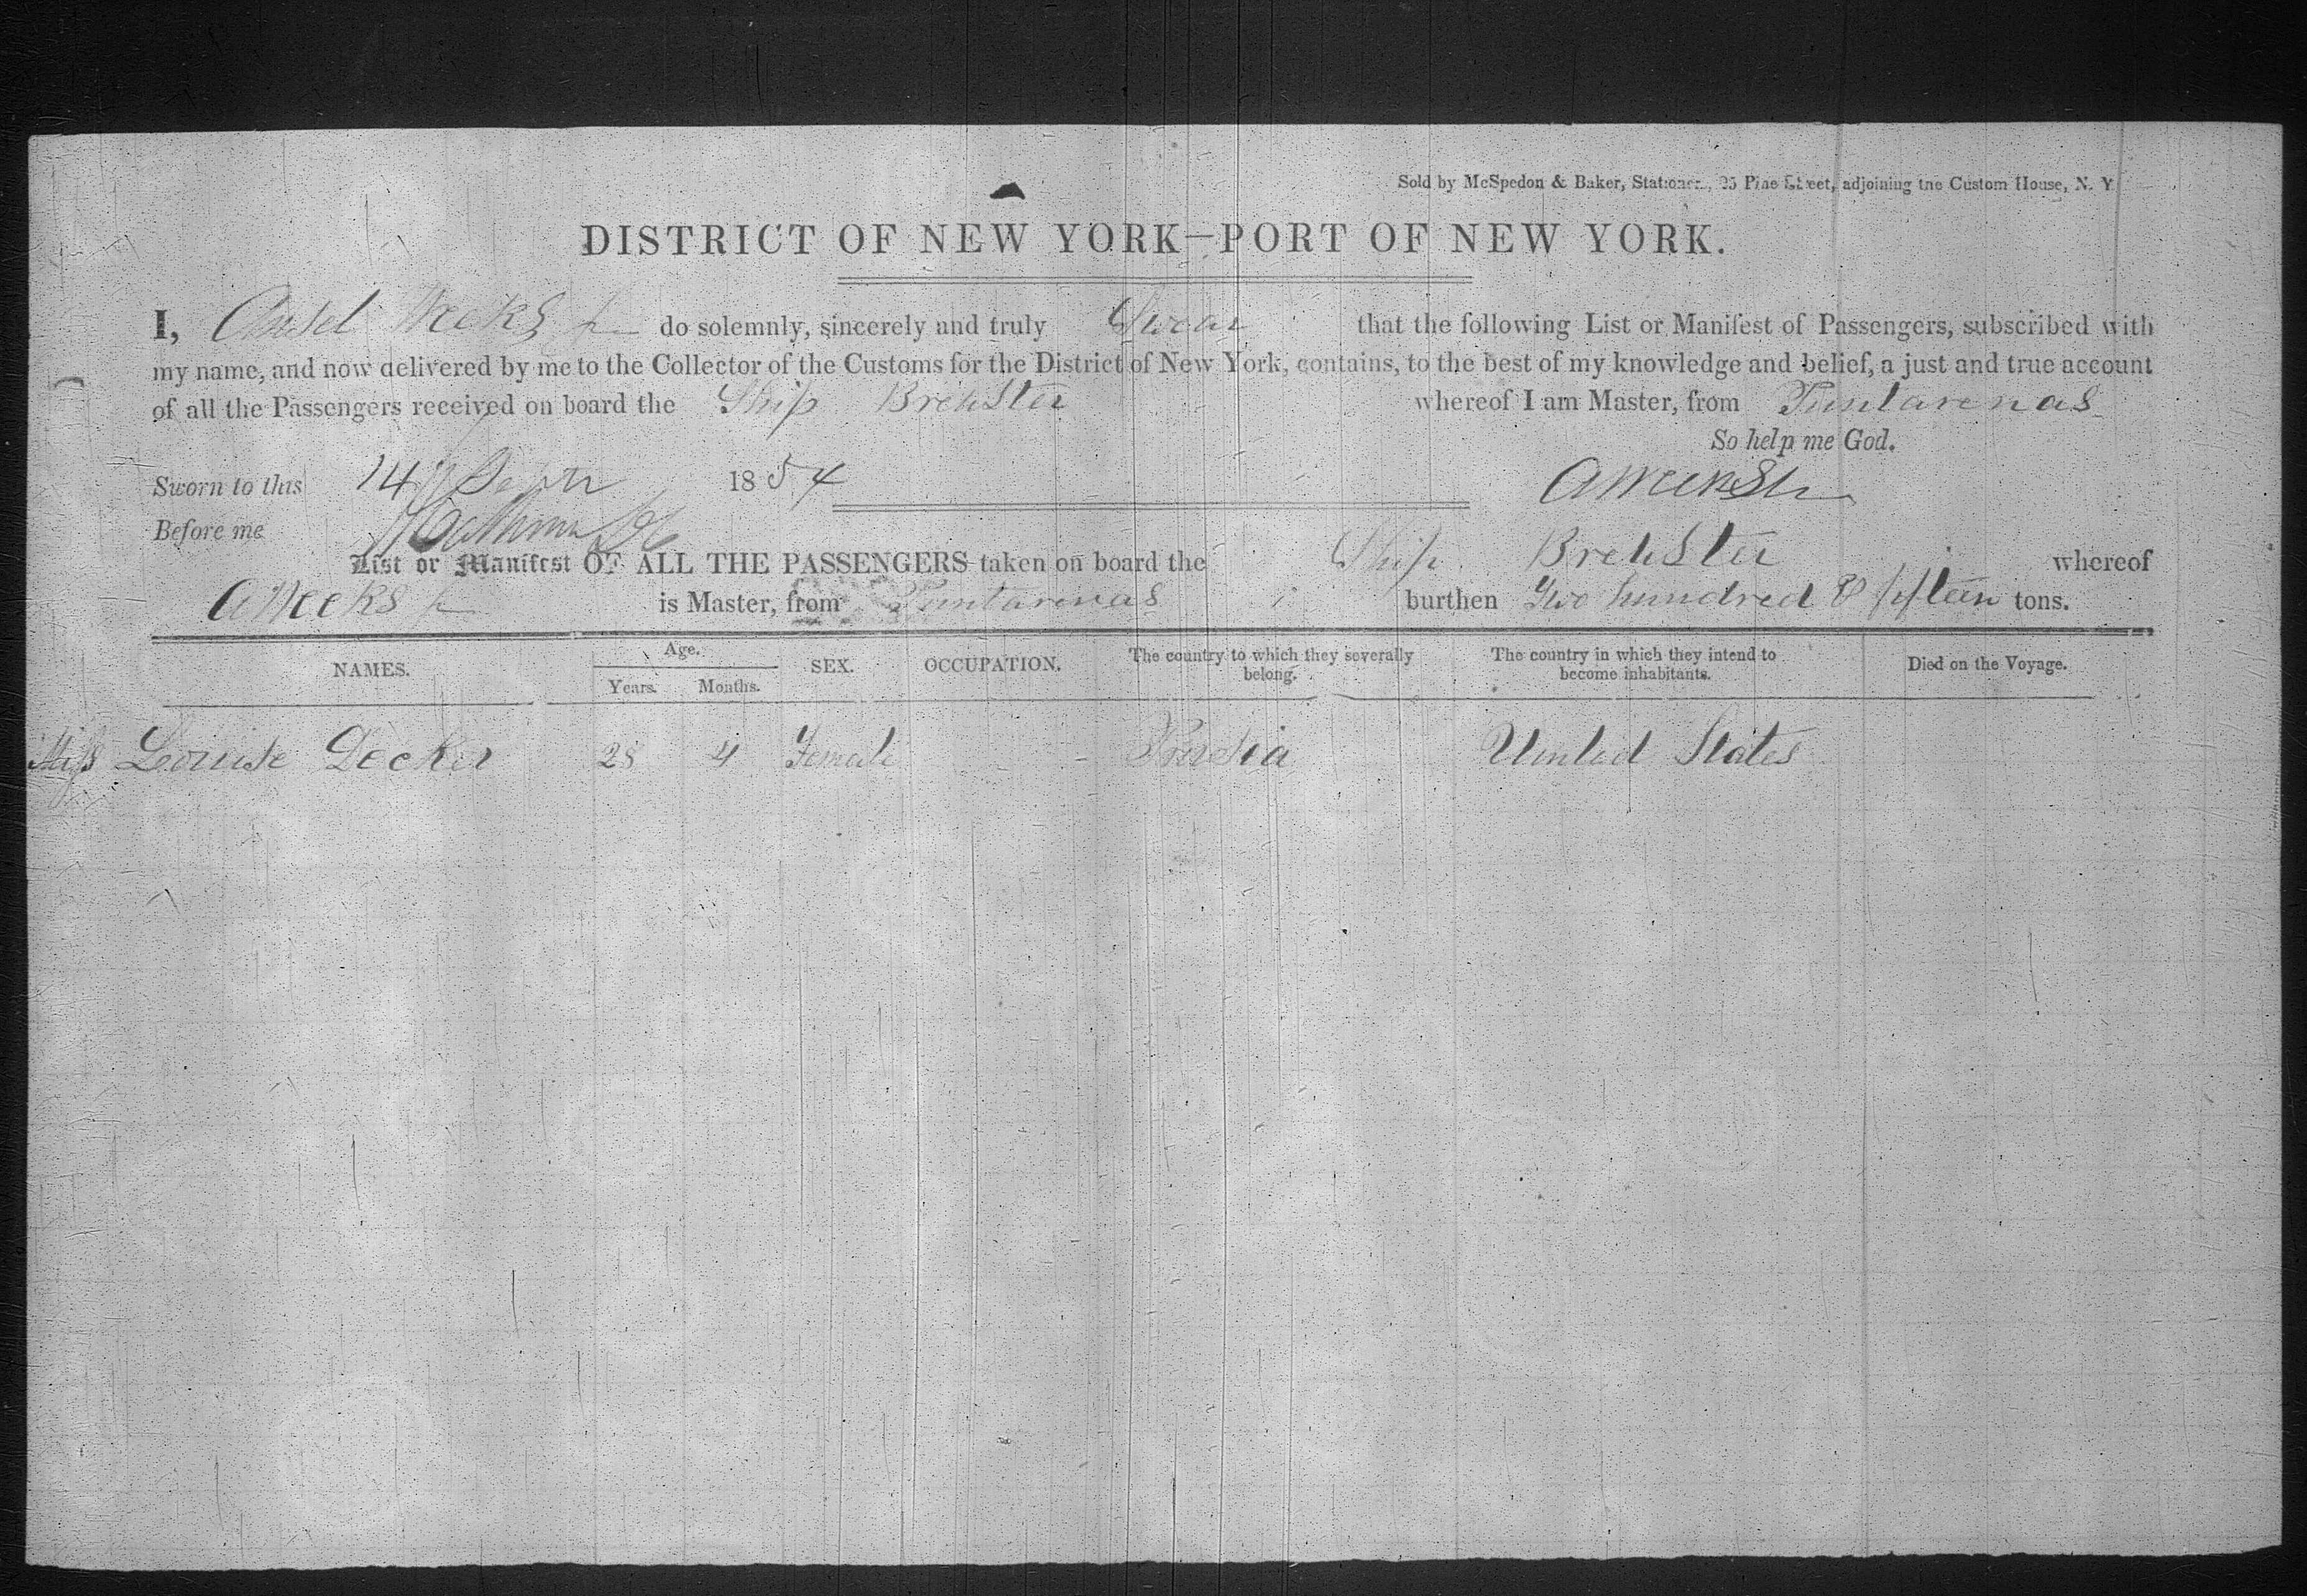 Sold by McSpedon & Baker, Stationers, 25 Pine Street, adjoining the Custom House, N. Y.
DISTRICT OF NEW YORK—PORT OF NEW YORK.
I, Ansel Weeks Jr do solemnly, sincerely and truly Swear that the following List or Manifest of Passengers, subscribed with
my name, and now delivered by me to the Collector of the Customs for the District of New York, contains, to the best of my knowledge and belief, a just and true account
of all the Passengers received on board the Ship Brewster whereof I am Master, from Puntarenas
So help me God.
Sworn to this 14 1854 A Weeks Jr
Before me
List or Manifest OF ALL THE PASSENGERS taken on board the Ship Brewster whereof
A Weeks Jr is Master, from Puntarenas burthen Two hundred & fifteen tons.
NAMES. Age. Years. Months. SEX. OCCUPATION. The country to which they severally belong. The country in which they intend to become inhabitants. Died on the Voyage.
Miss Louise Decker 28 4 Female - Prusia United States